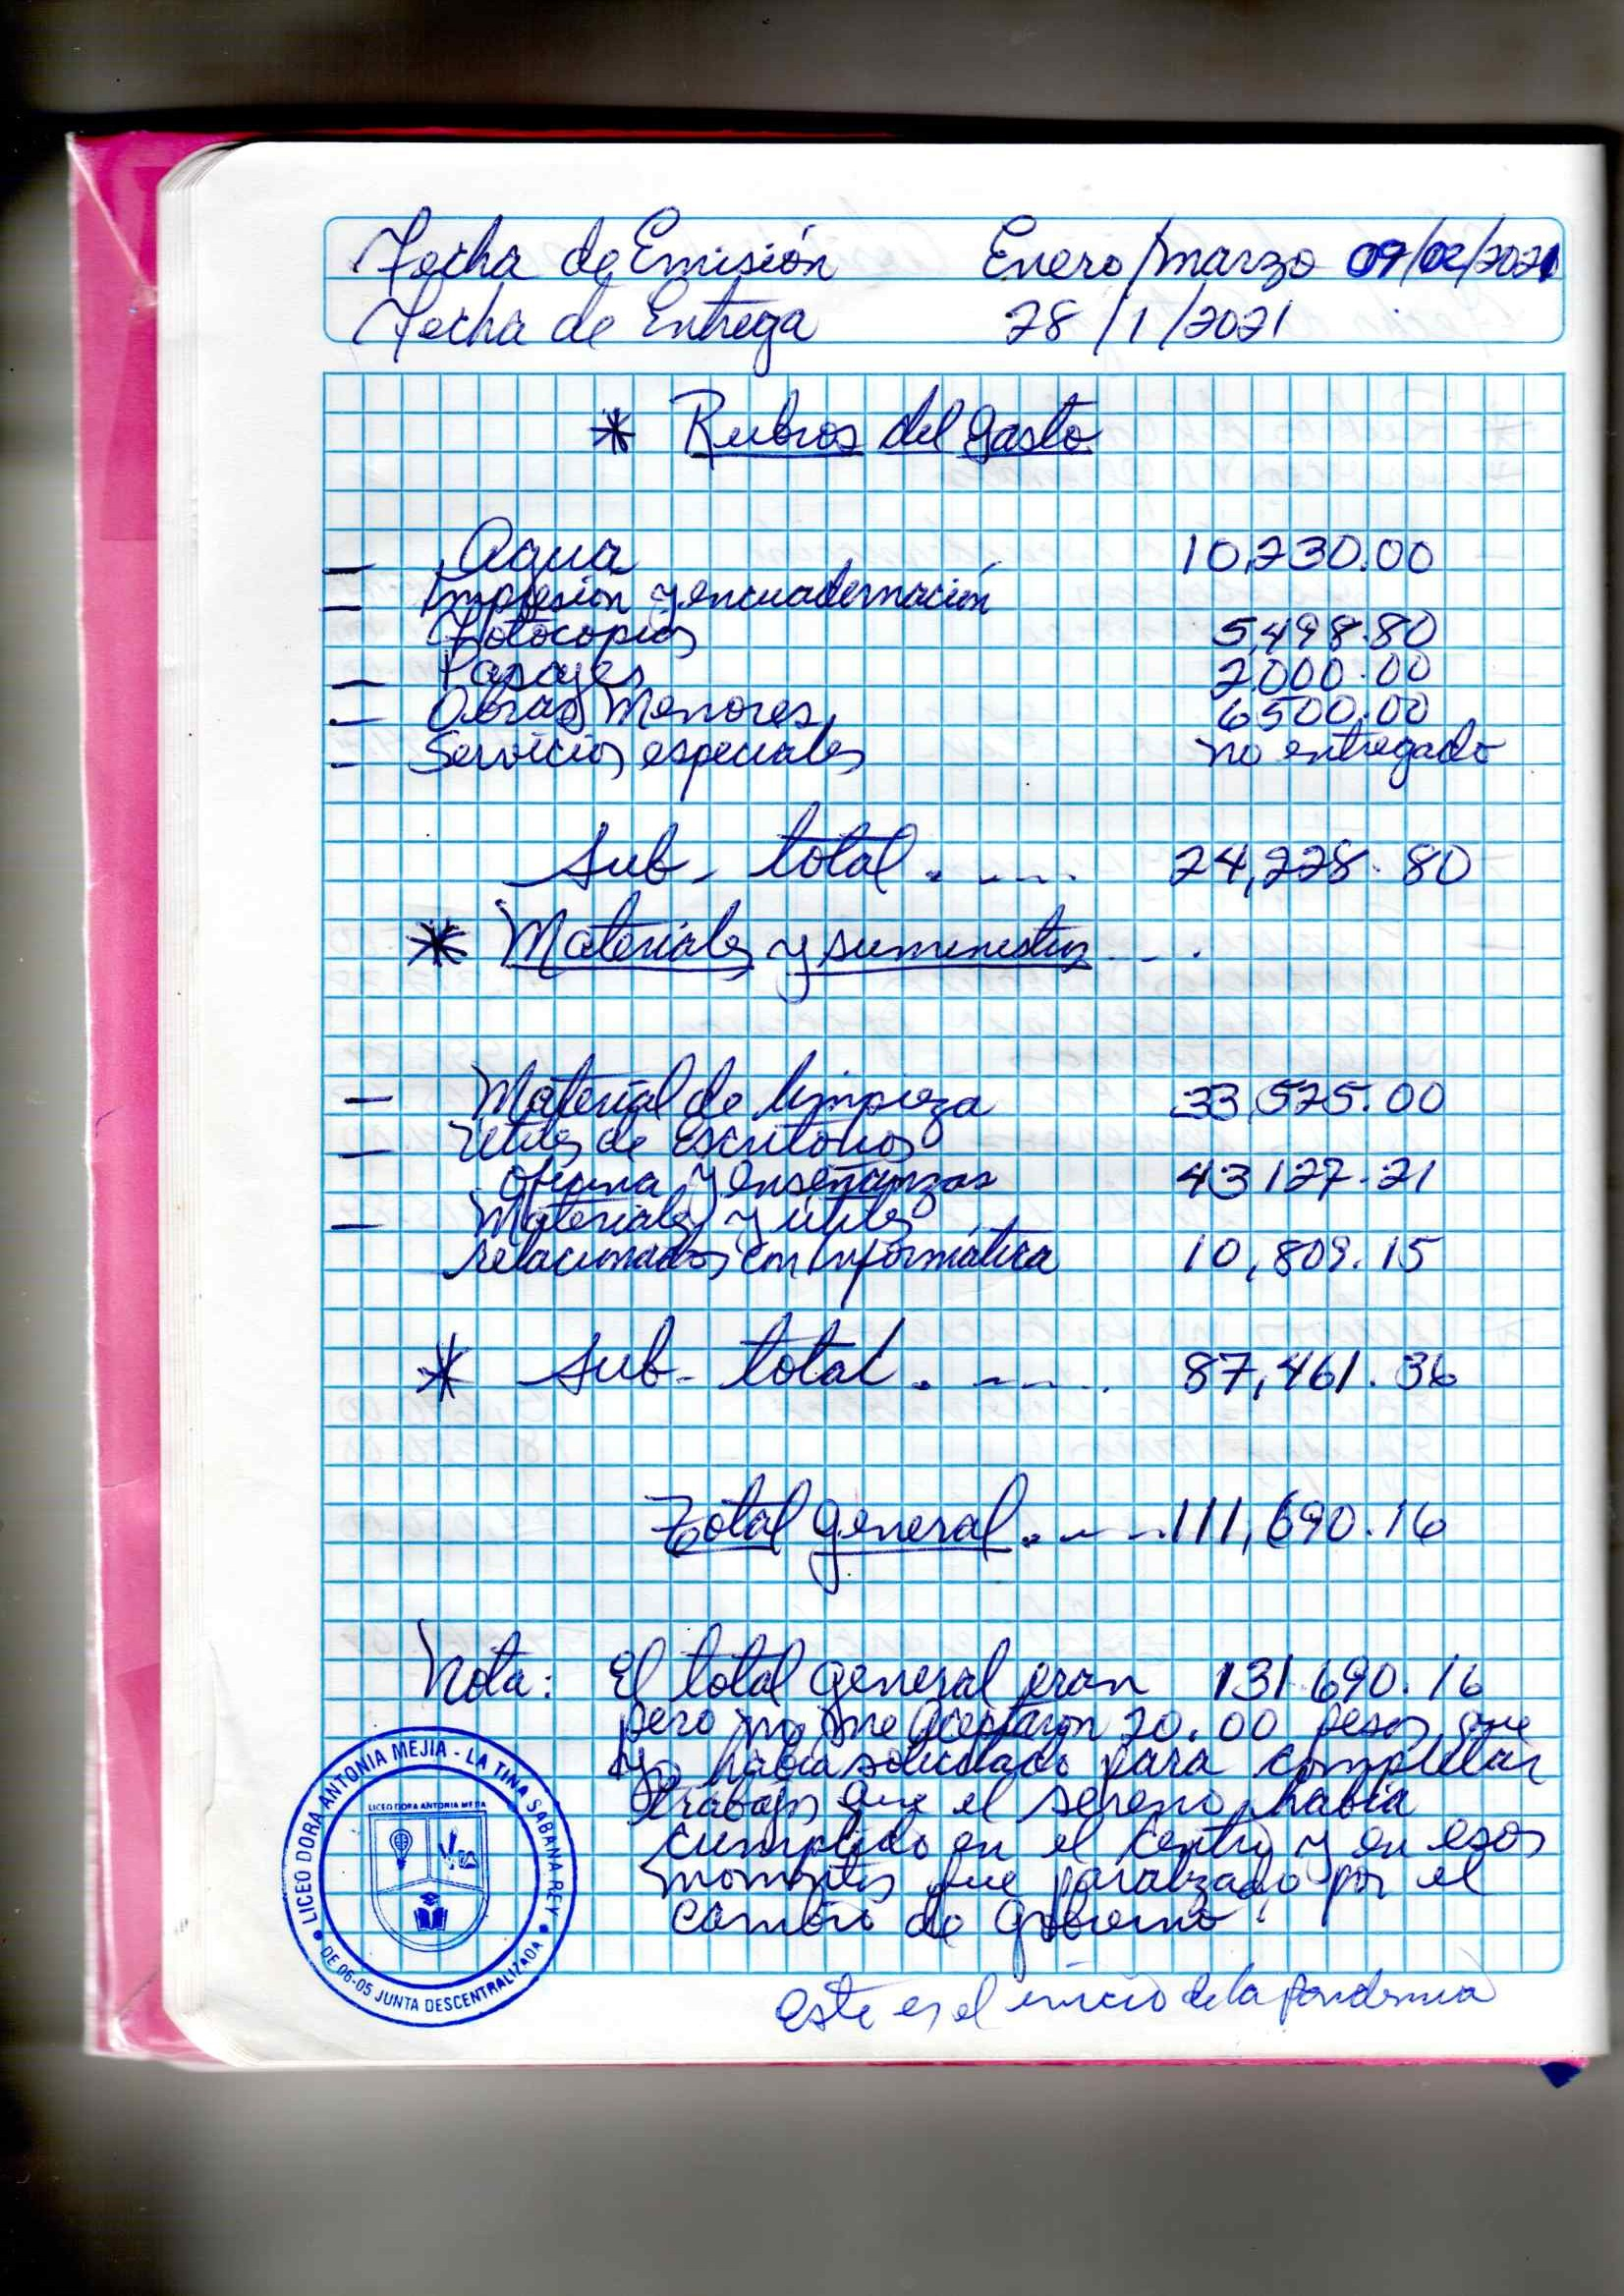 Fecha de Emisión Enero/marzo 09/02/2021
Fecha de Entrega 28/1/2021
* Rubros del gasto
- Agua 10,230.00
- Impresión y encuadernación
Fotocopias 5,498.80
- Pasajes 2,000.00
- Obras Menores 6500.00
- Servicios especiales no entregado
Sub-total . ---. 24,228.80
* Materiales y suministros ---.
- Material de limpieza 33,525.00
- Utiles de Escritorios
oficina y enseñanzas 43127.21
- Materiales y utiles
relacionados con Informática 10,809.15
* Sub-total . ---. 87,461.36
Total general . ---. 111,690.16
Nota: El total general eran 131.690.16
pero no me aceptaron 20.00 pesos que
yo había solicitado para completar
trabajos que el sereno había
cumplido en el Centro y en esos
momentos fue paralizado por el
cambio de gobierno.
LICEO DORA ANTONIA MEJIA - LA TINA SABANA REY
LICEO DORA ANTONIA MEJIA
DE 06-05 JUNTA DESCENTRALIZADA
este es el inicio de la pandemia